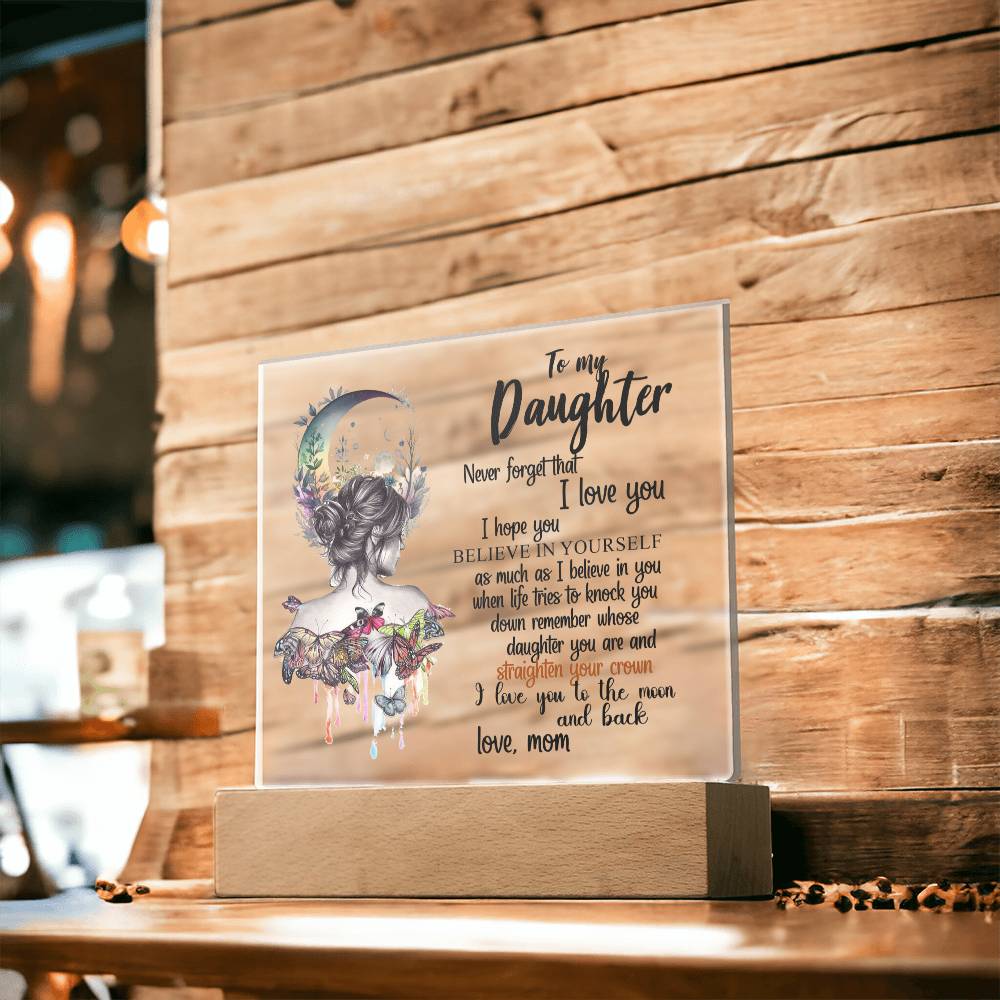 To my
Daughter
Never forget that
I love you
I hope you
BELIEVE IN YOURSELF
as much as I believe in you
when life tries to knock you
down remember whose
daughter you are and
straighten your crown
I love you to the moon
and back
love, mom